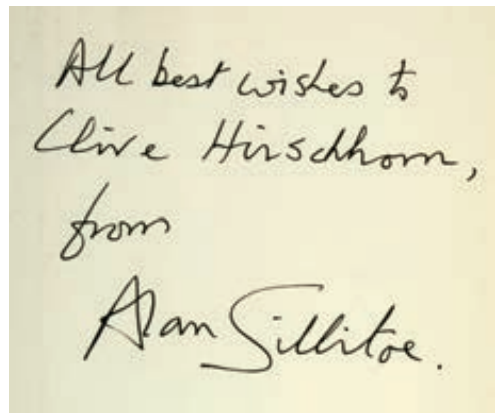 All best wishes to
Clive Hirschhorn,
from
Alan Sillitoe.